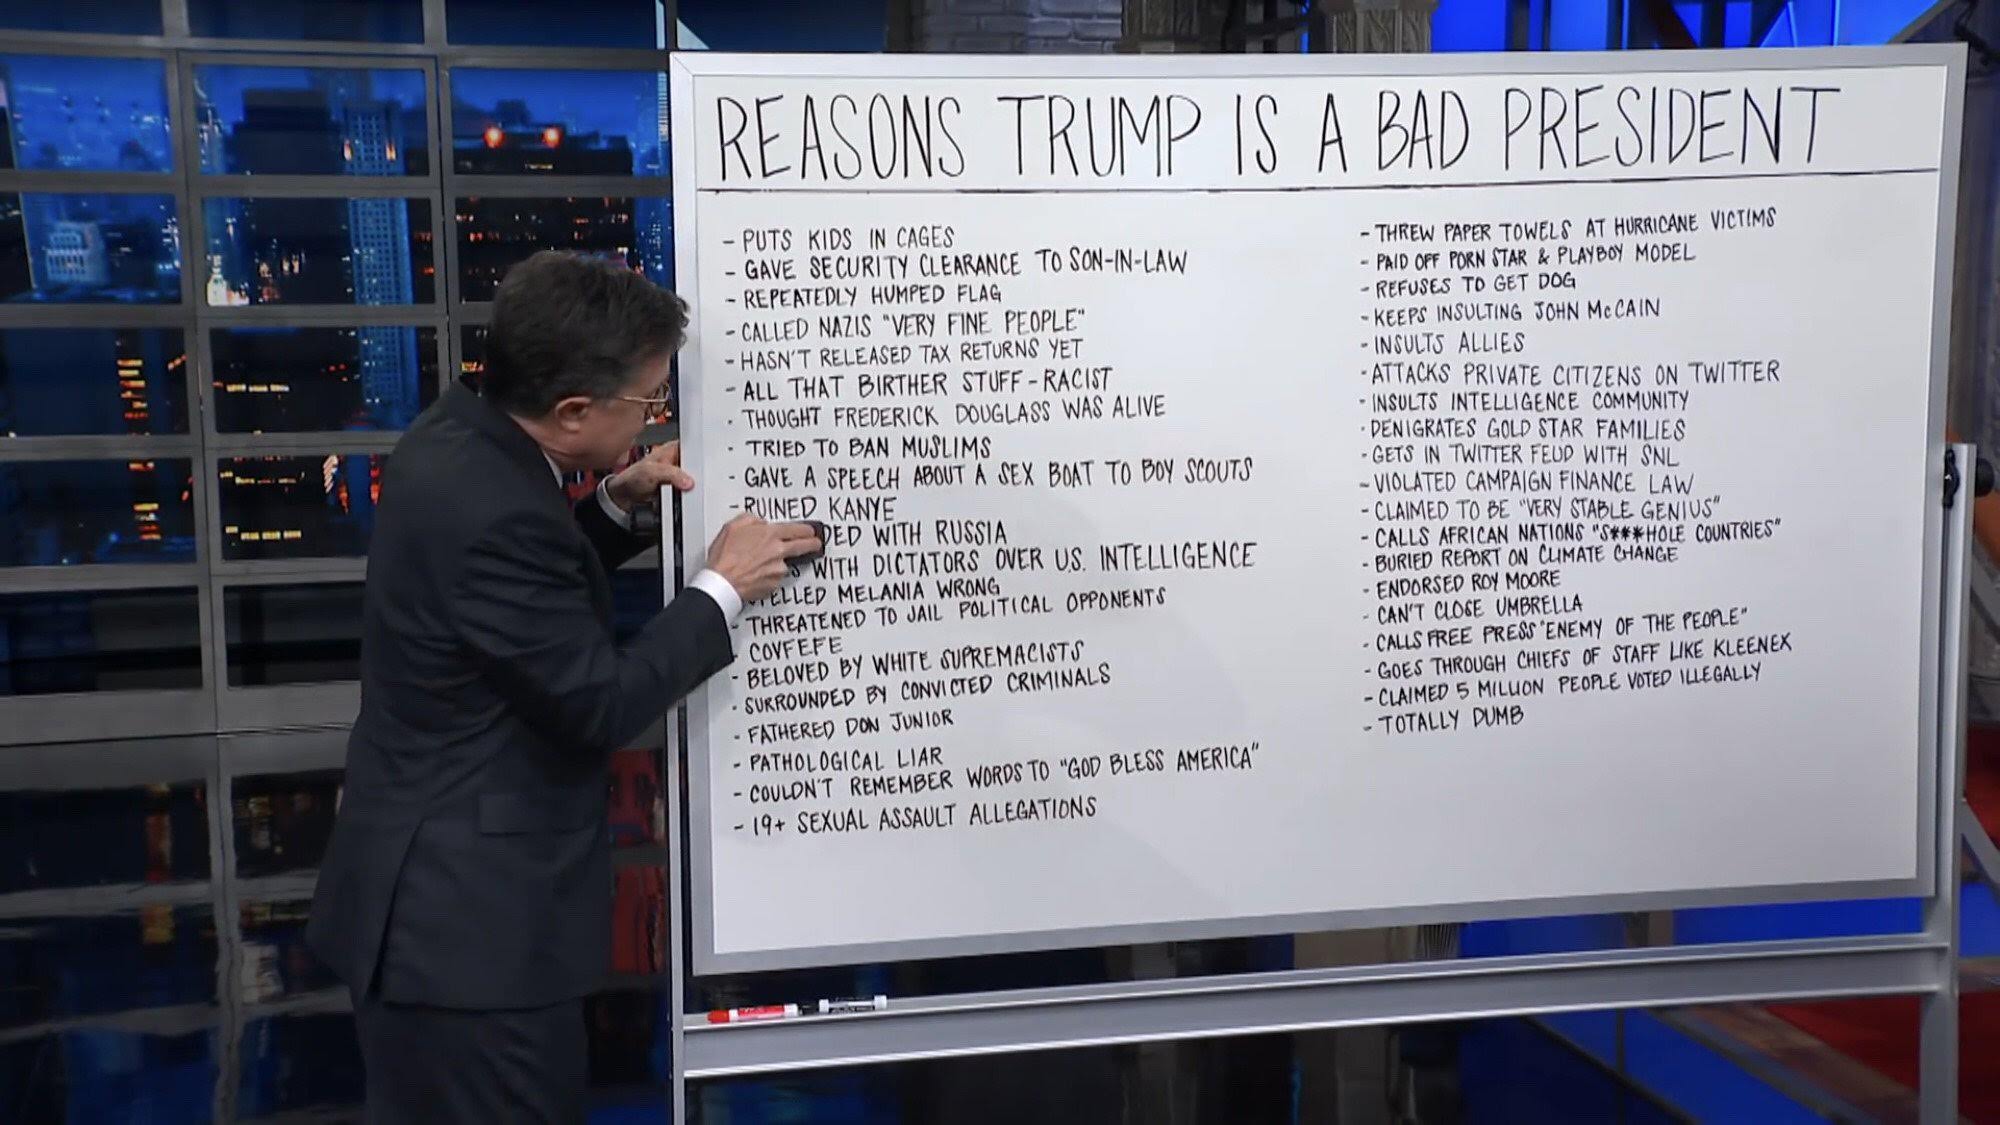 REASONS TRUMP IS A BAD PRESIDENT
- PUTS KIDS IN CAGES
- GAVE SECURITY CLEARANCE TO SON-IN-LAW
- REPEATEDLY HUMPED FLAG
- CALLED NAZIS "VERY FINE PEOPLE"
- HASN'T RELEASED TAX RETURNS YET
- ALL THAT BIRTHER STUFF - RACIST
- THOUGHT FREDERICK DOUGLASS WAS ALIVE
- TRIED TO BAN MUSLIMS
- GAVE A SPEECH ABOUT A SEX BOAT TO BOY SCOUTS
- RUINED KANYE
DED WITH RUSSIA
S WITH DICTATORS OVER U.S. INTELLIGENCE
PELLED MELANIA WRONG
- THREATENED TO JAIL POLITICAL OPPONENTS
- COVFEFE
- BELOVED BY WHITE SUPREMACISTS
- SURROUNDED BY CONVICTED CRIMINALS
- FATHERED DON JUNIOR
- PATHOLOGICAL LIAR
- COULDN'T REMEMBER WORDS TO "GOD BLESS AMERICA"
- 19+ SEXUAL ASSAULT ALLEGATIONS
- THREW PAPER TOWELS AT HURRICANE VICTIMS
- PAID OFF PORN STAR & PLAYBOY MODEL
- REFUSES TO GET DOG
- KEEPS INSULTING JOHN McCAIN
- INSULTS ALLIES
- ATTACKS PRIVATE CITIZENS ON TWITTER
- INSULTS INTELLIGENCE COMMUNITY
- DENIGRATES GOLD STAR FAMILIES
- GETS IN TWITTER FEUD WITH SNL
- VIOLATED CAMPAIGN FINANCE LAW
- CLAIMED TO BE "VERY STABLE GENIUS"
- CALLS AFRICAN NATIONS "S***HOLE COUNTRIES"
- BURIED REPORT ON CLIMATE CHANGE
- ENDORSED ROY MOORE
- CAN'T CLOSE UMBRELLA
- CALLS FREE PRESS "ENEMY OF THE PEOPLE"
- GOES THROUGH CHIEFS OF STAFF LIKE KLEENEX
- CLAIMED 5 MILLION PEOPLE VOTED ILLEGALLY
- TOTALLY DUMB